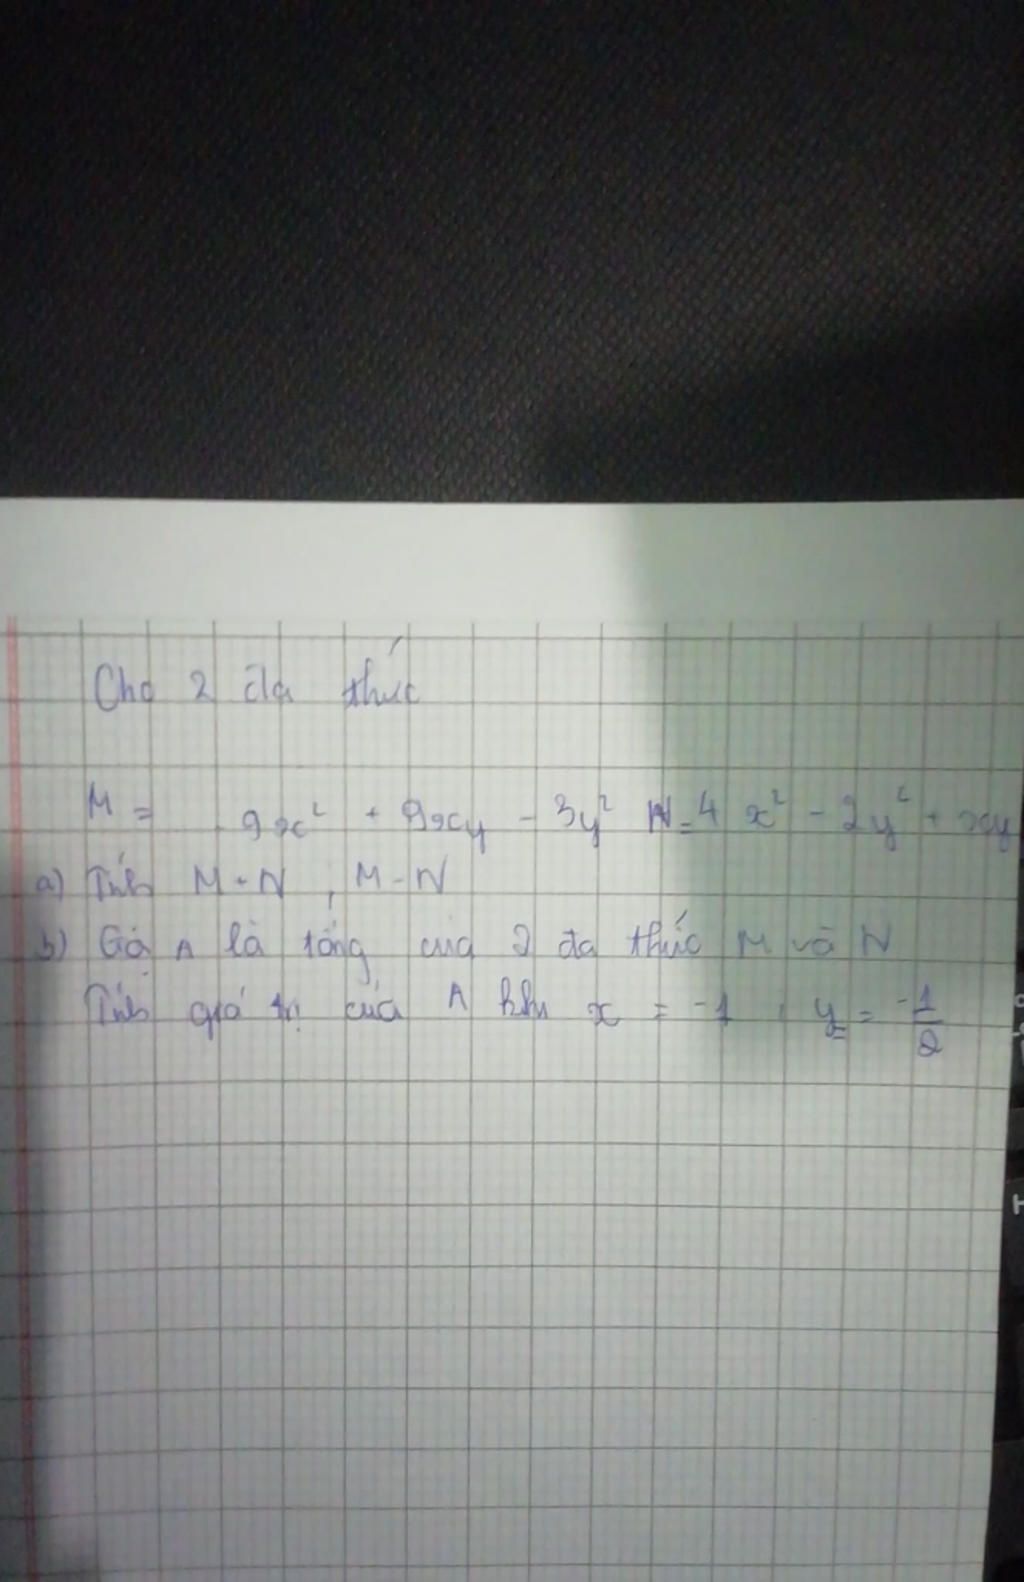 Cho 2 đa thức
M = 9x² + 9xy - 3y² N = 4x² - 2y² + xy
a) Tính M + N , M - N
b) Gọi A là tổng của 2 đa thức M và N
Tính giá trị của A khi x = -1 , y = -1/2